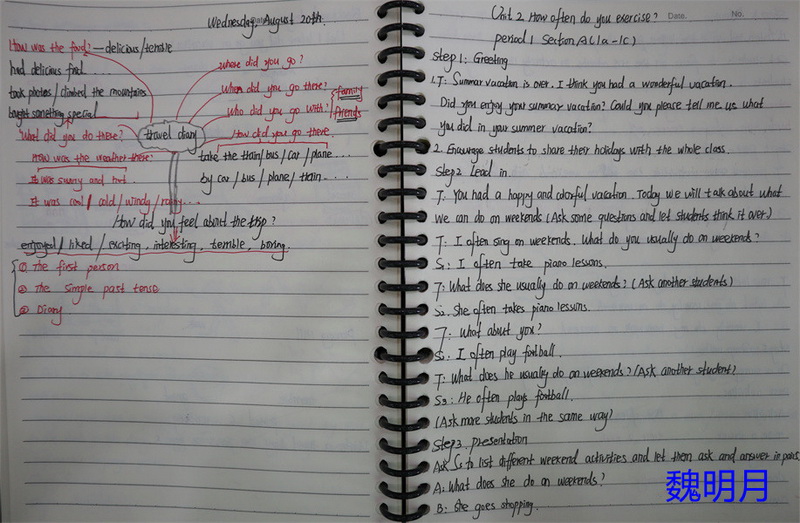 Wednesday, August 20th.
How was the food? — delicious/terrible
had delicious food ....
took photos / climbed the mountains
bought something special
Where did you go?
When did you go there?
Who did you go with?
Family
friends
What did you do there?
travel diary
How did you go there.
How was the weather there?
take the train/bus/car/plane....
It was sunny and hot.
by car/bus/plane/train....
It was cool/cold/windy/rainy...
How did you feel about the trip?
enjoyed/liked/exciting, interesting, terrible, boring.
① The first person
② The simple past tense
③ Diary
Unit 2 How often do you exercise?
Date.
No.
period 1 Section A (1a-1c)
Step 1: Greeting
1. T: Summer vacation is over. I think you had a wonderful vacation.
Did you enjoy your summer vacation? Could you please tell me us what
you did in your summer vacation?
2. Encourage students to share their holidays with the whole class.
Step 2 Lead in.
T: You had a happy and colorful vacation. Today we will talk about what
we can do on weekends (Ask some questions and let students think it over)
T: I often sing on weekends. What do you usually do on weekends?
S1: I often take piano lessons.
T: What does she usually do on weekends? (Ask another students)
S2: She often takes piano lessons.
T: What about you?
S2: I often play football.
T: What does he usually do on weekends? (Ask another student)
S3: He often plays football.
(Ask more students in the same way)
Step 3 presentation
Ask Ss to list different weekend activities and let them ask and answer in pairs
A: What does she do on weekends?
B: She goes shopping.
魏明月